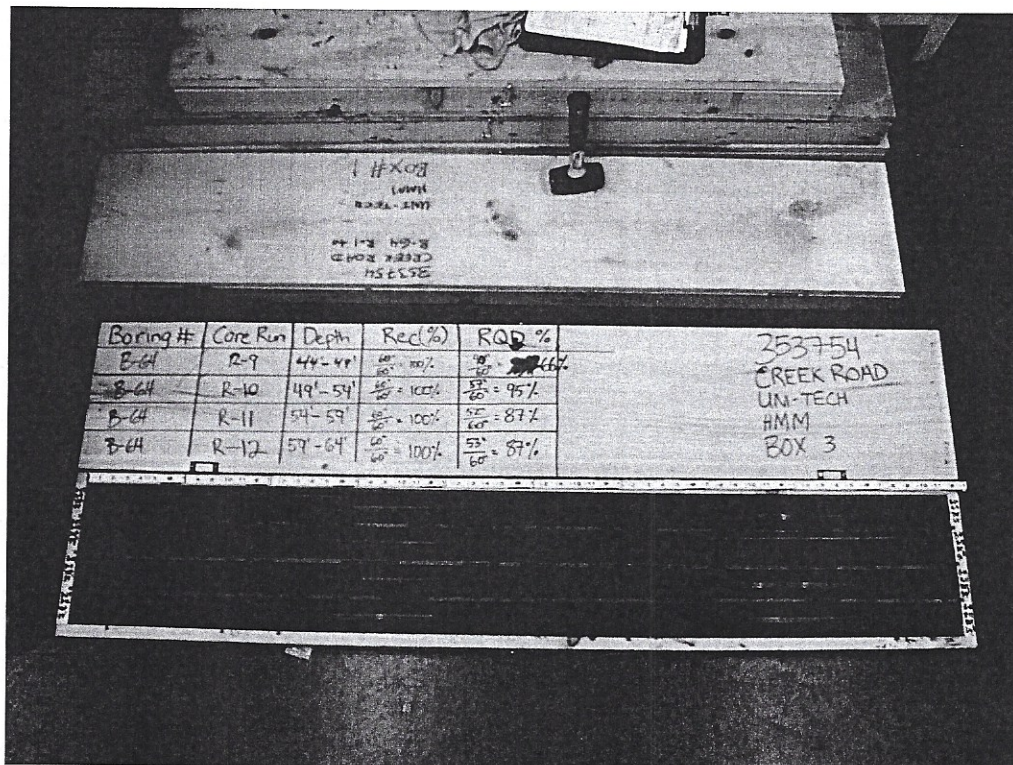 353754
CREEK ROAD
B-64 R-1 to
UNI-TECH
HMM
BOX # 1
Boring # Core Run Depth Rec(%) RQD %
B-64 R-9 44'-49' 60"/60" = 100% 40"/60" = 66%
B-64 R-10 49'-54' 60"/60" = 100% 57"/60" = 95%
B-64 R-11 54'-59' 60"/60" = 100% 52"/60" = 87%
B-64 R-12 59'-64' 60"/60" = 100% 53"/60" = 87%
353754
CREEK ROAD
UNI-TECH
HMM
BOX 3